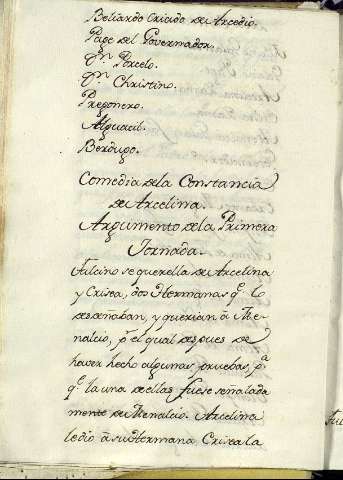 Beliardo Criado de Arcedio.
Page del Governador.
Porcelo.
Christino.
Pregonero.
Alguacil.
Berdugo.
Comedia dela Constancia
de Arcelina.
Argumento dela Primera
Jornada.
Fulcino se querella de Arcelina
y Crisea, dos Hermanas q.e lo
desdeñaban, y querian à Me-
nalcio, p.r el qual despues de
haver hecho algunas pruebas, p.a
q.e la una de ellas fuese señalada
mente de Menalcio. Arcelina
le dio à su Hermana Crisea la